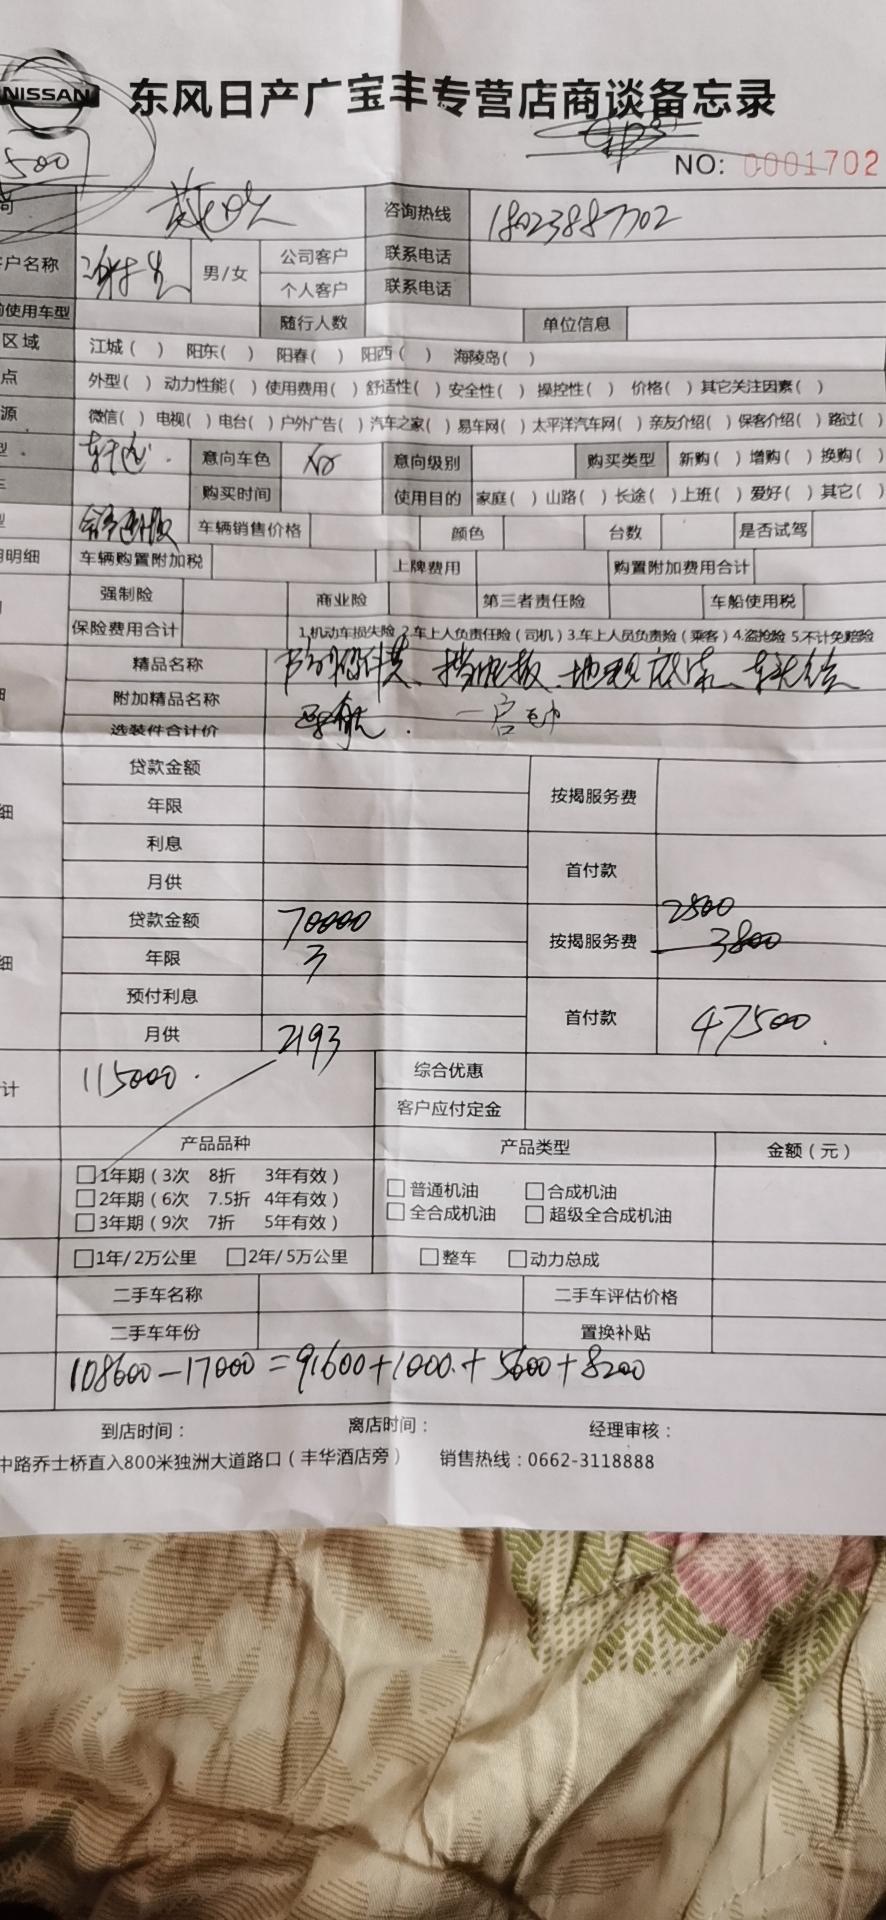 NISSAN 东风日产广宝丰专营店商谈备忘录
500
NO: 0001702
咨询热线 18023887702
客户名称 男/女 公司客户 联系电话
个人客户 联系电话
使用车型 随行人数 单位信息
区域 江城( ) 阳东( ) 阳春( ) 阳西( ) 海陵岛( )
点 外型( ) 动力性能( ) 使用费用( ) 舒适性( ) 安全性( ) 操控性( ) 价格( ) 其它关注因素( )
源 微信( ) 电视( ) 电台( ) 户外广告( ) 汽车之家( ) 易车网( ) 太平洋汽车网( ) 亲友介绍( ) 保客介绍( ) 路过( )
型 轩逸. 意向车色 意向级别 购买类型 新购( ) 增购( ) 换购( )
车 购买时间 使用目的 家庭( ) 山路( ) 长途( ) 上班( ) 爱好( ) 其它( )
型 车辆销售价格 颜色 台数 是否试驾
用明细 车辆购置附加税 上牌费用 购置附加费用合计
强制险 商业险 第三者责任险 车船使用税
保险费用合计 1.机动车损失险 2.车上人负责任险(司机) 3.车上人员负责险(乘客) 4.盗抢险 5.不计免赔险
细 精品名称 挡泥板、
附加精品名称 导航.
选装件合计价
贷款金额 按揭服务费
细 年限
利息 首付款
月供
贷款金额 70000 按揭服务费 2800 3800
细 年限 3
预付利息 首付款 47500.
月供 2193
计 115000. 综合优惠
客户应付定金
产品品种 产品类型 金额(元)
□1年期(3次 8折 3年有效) □普通机油 □合成机油
□2年期(6次 7.5折 4年有效) □全合成机油 □超级全合成机油
□3年期(9次 7折 5年有效)
□1年/2万公里 □2年/5万公里 □整车 □动力总成
二手车名称 二手车评估价格
二手车年份 置换补贴
108600-17000=91600+1000.+5600+8200
到店时间: 离店时间: 经理审核:
中路乔士桥直入800米独洲大道路口(丰华酒店旁) 销售热线:0662-3118888